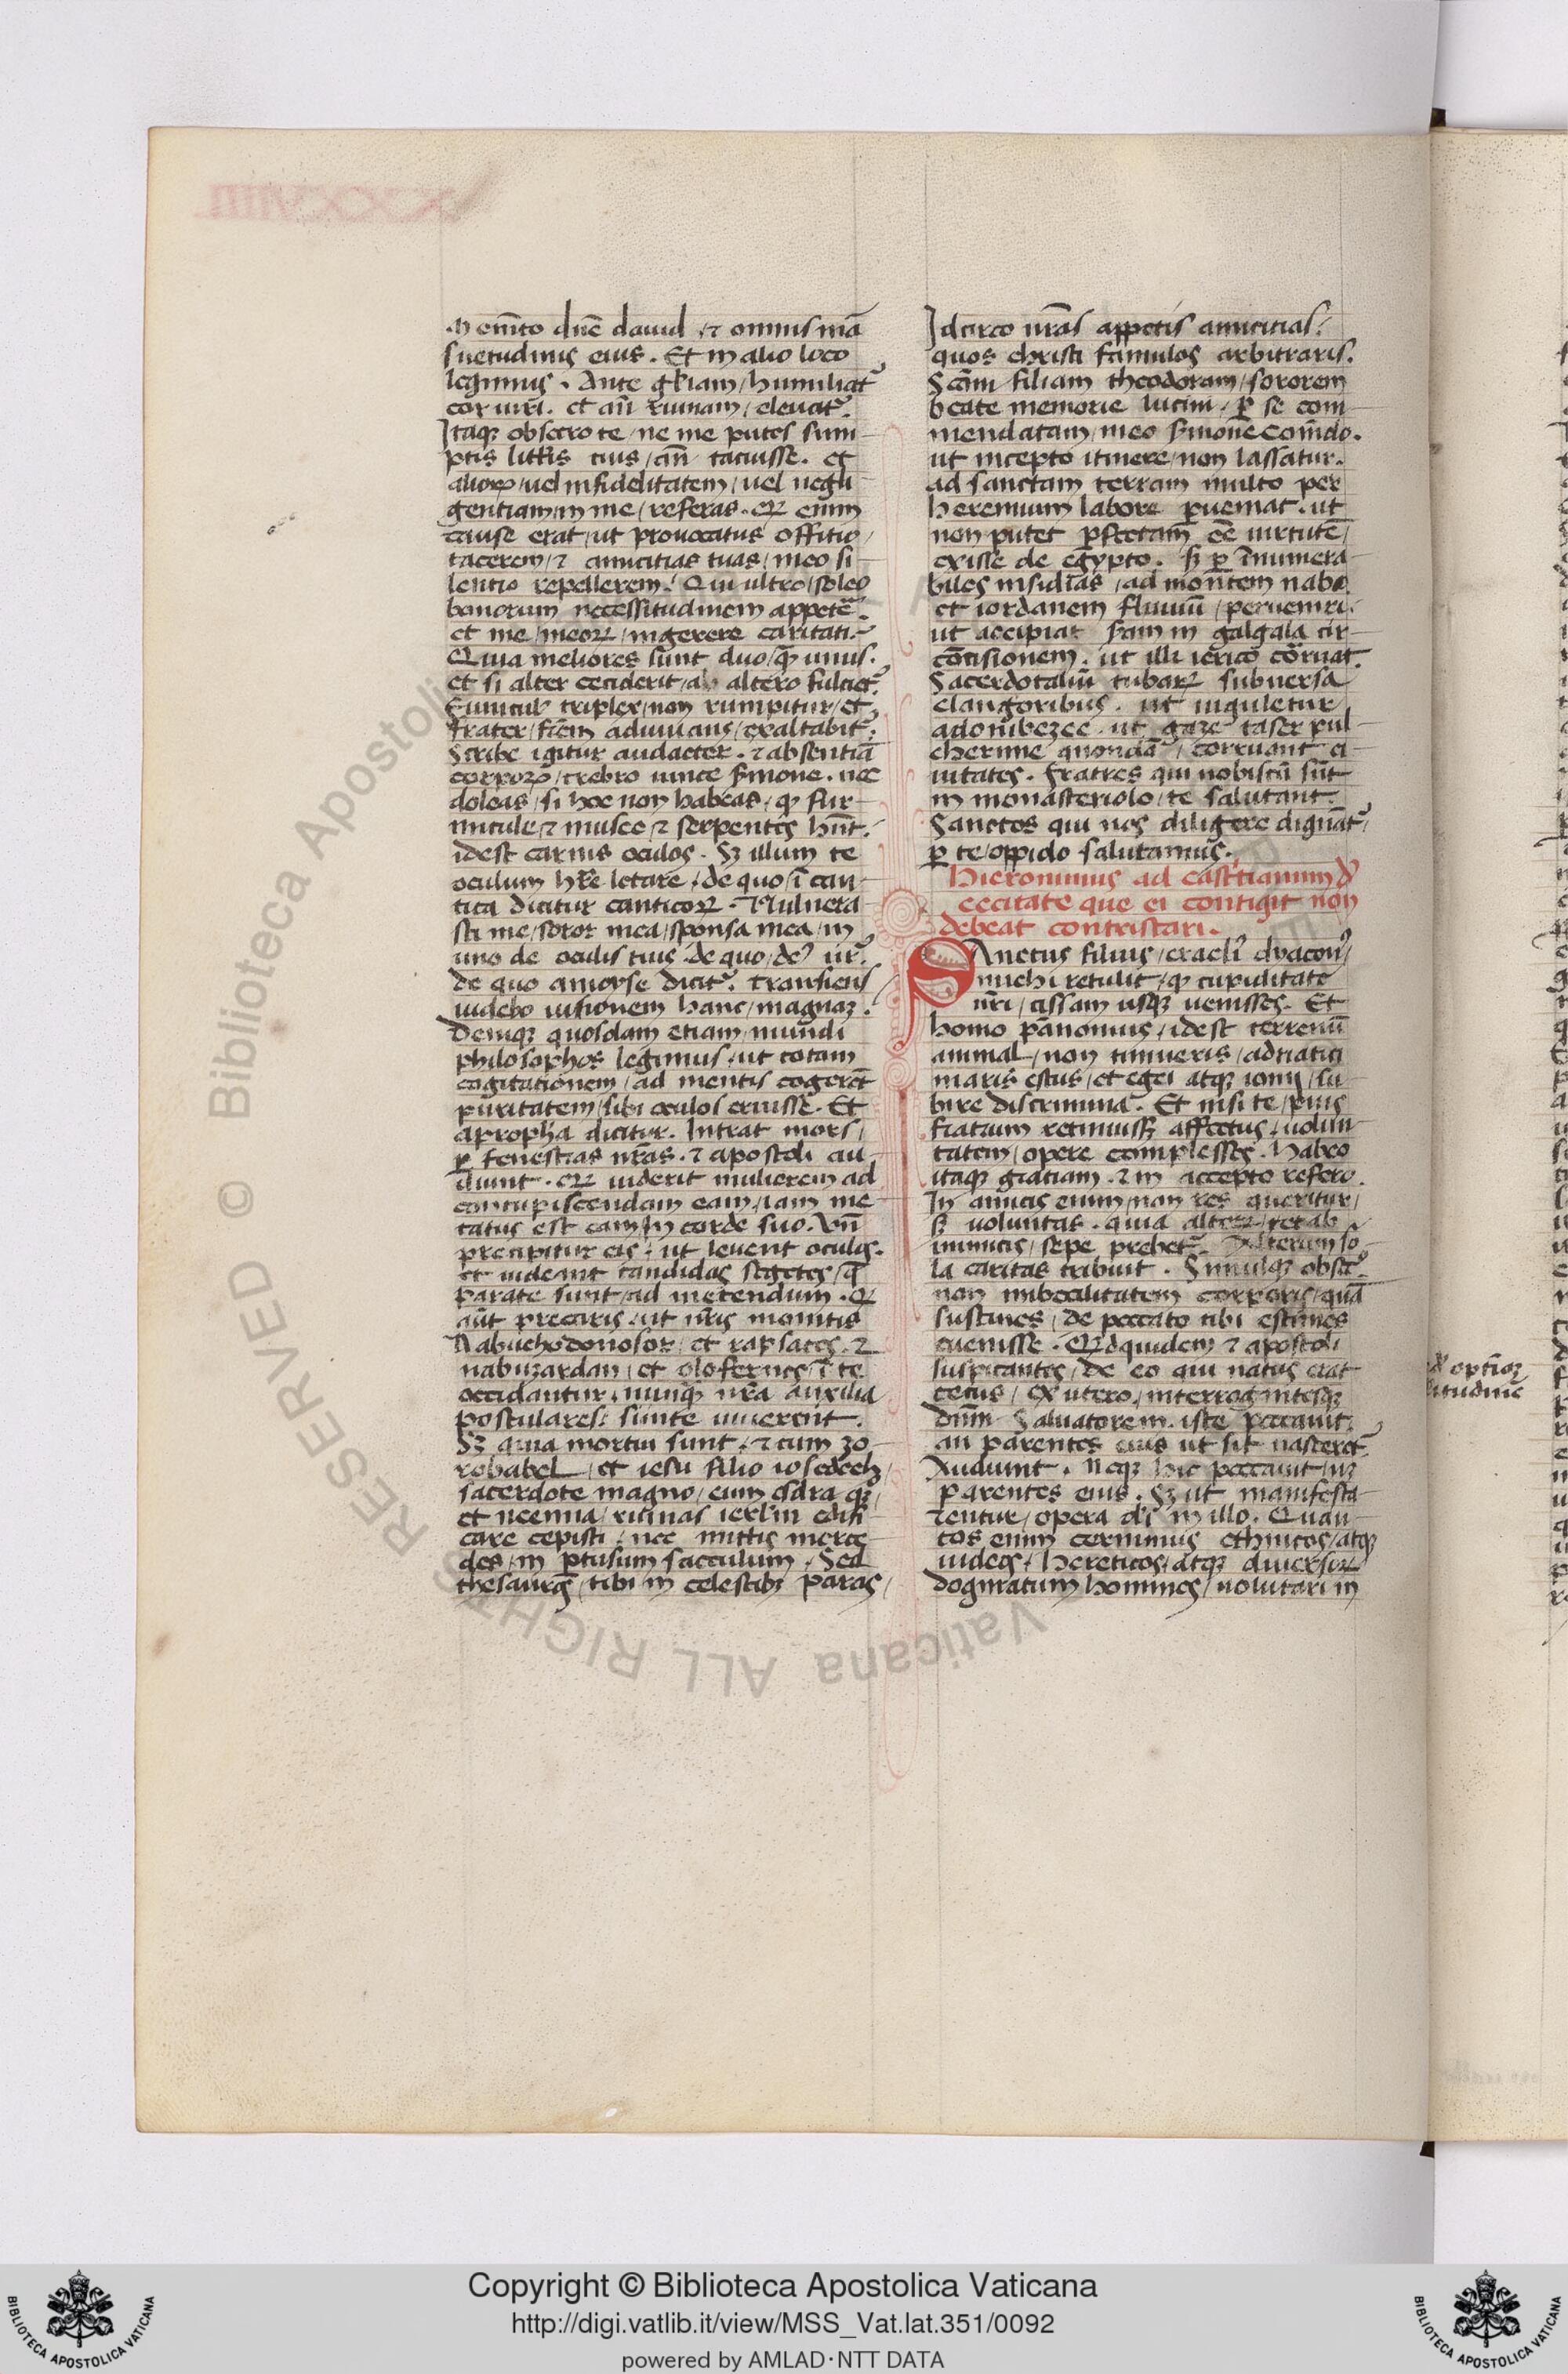 Memẽto dñe dauid ⁊ omnis mã
suetudinis eius . Et in alio loco
legimus . Ante gl̃iam / humiliatᷣ
cor uiri . et añ ruinam / eleuatᷣ .
Itaqꝫ obsecro te / ne me putes sum
ptis litt̃is tuis / añ tacuisse . et
alioꝝ / uel infidelitatem / uel negli
gentiam / in me / referas . Qꝫ enim
cause erat / ut prouocatus offitio /
tacerem / ⁊ amicitias tuas / meo si
lentio repellerem . Qui ultro / soleo
bonorum necessitudinem appetẽ .
et me / meoꝝ / ingerere caritati .
Quia meliores sunt duo / qꝫ unus .
et si alter ceciderit / ab altero fulcietᷣ .
Funiculꝰ triplex / non rumpitur / et
frater / frẽm adiuuans / exaltabitᷣ .
Scribe igitur audacter . ⁊ absentiã
corpoꝝ / crebro uince s̃mone . nec
doleas / si hoc non habeas / qꝫ fur
micule / ⁊ musce / ⁊ serpentes hñt .
idest carnis oculos . Sꝫ illum te
oculum hr̃e letare / de quo / ĩ can
tica dicitur canticoꝝ . Uulnera
sti me / soror mea / sponsa mea / in
uno de oculis tuis de quo / deꝰ uirᷣ .
de quo a moyse dicitᷣ . Transiens
uidebo uisionem hanc / magnaꝫ .
Deniqꝫ quosdam etiam / mundi
philosophos legimus / ut totam
cogitationem / ad mentis cogerẽt
puritatem / sibi oculos eruisse . Et
a propha dicitur . Intrat mors /
ꝑ fenestras nr̃as . ⁊ apostoli au
diunt . Qꝫ uiderit mulierem ad
concupiscendam eam / iam me
catus est eam / in corde suo . Vñ
precipitur eis / ut leuent oculos .
et uideant candidas segetes / q̃
parate sunt / ad metendum . Qꝫ
aũt precaris / ut nr̃is monitis
Nabuchodonosor / et rapsaces . ⁊
nabuzardan / et olofernes / ĩ te
occidantur / nunqꝫ nr̃a auxilia
postulares / si in te uiuerent .
Sꝫ quia mortui sunt . ⁊ cum zo
robabel / et iesu filio iosedech /
sacerdote magno / cum esdra qꝫ /
et neemia / ruinas ierl̃m edifi
care cepisti / nec mittis merce
des / in ꝑtusum sacculum . Sed
thesauros / tibi in celestibꝫ paras /
Idcirco nr̃as appetis amicitias .
quos christi famulos arbitraris .
Sc̃am filiam theodoram / sororem
beate memorie lucini / ꝑ se com
mendatam / meo s̃mone com̃do .
ut incepto itinere / non lassatur .
ad sanctam terram multo per
heremium labore ꝑueniat . ut
non putet ꝑfectam eẽ uirtutẽ /
exisse de egypto . Sꝫ ꝑ ĩnumera
biles insidias / ad montem nabo
et iordanem fluuiũ / peruenire .
ut accipiat scãm in galgala cir
cõcisionem . ut illi ierico corruat .
Sacerdotaliũ tubaꝝ subuersa
clangoribus . ut iuguletur
adonibezec . ut gaze / taser pul
cherime quondã / corruant ci
uitates . Fratres qui nobiscũ sũt
in monasteriolo / te salutant .
Sanctos qui nos diligere dignatᷣ /
ꝑ te / oppido salutamus .
Hieronimus ad castitianum dͤ
cecitate que ei contigit non
debeat contristari .
SAnctus filius / eracliꝰ dyaconꝰ /
michi retulit / qꝫ cupiditate
nr̃i / cissam usqꝫ uenisses . Et
homo panonius / idest terrenũ
animal / non timueris / adriatici
maris estus / et egei atqꝫ ionij / su
bire discrimina . Et nisi te / pius
fratrum retinuissꝫ affectus / uolun
tatem / opere complesses . Habeo
itaqꝫ gratiam . ⁊ in accepto refero .
In amicis enim / non res queritur /
sꝫ uoluntas . quia alteꝝ / et ab
inimicis / sepe prebetᷣ . Alterum so
la caritas tribuit . Simulqꝫ obsecᷣ .
non imbecilitatem corporis / quã
sustines / de peccato tibi estimes
euenisse . Qꝫ quidem ⁊ apostoli
suspicantes / de eo qui natus erat
cecus / ex utero / interrogantesqꝫ
dñm Saluatorem . iste peccauit .
an parentes eius ut sit nasceretᷣ .
Audiunt . Neqꝫ hic peccauit / neqꝫ
parentes eius . Sꝫ ut manifesta
rentur / opera dĩ in illo . Quan
tos enim cernimus ethnicos / atqꝫ
iudeos / hereticos / atqꝫ diuersoꝝ
dogmatum homines / uolutari in
Copyright © Biblioteca Apostolica Vaticana
http://digi.vatlib.it/view/MSS_Vat.lat.351/0092
powered by AMLAD·NTT DATA
BIBLIOTECA APOSTOLICA VATICANA
BIBLIOTECA APOSTOLICA VATICANA